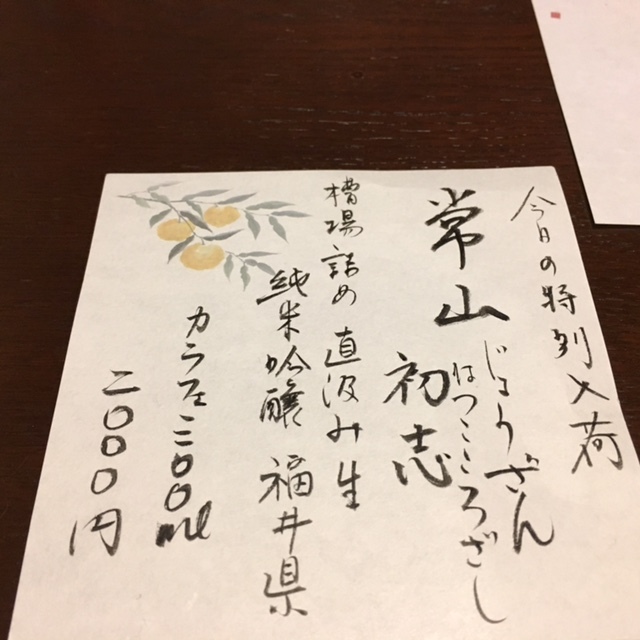 今日の特別入荷
じょうざん
はつこころざし
常山 初志
槽場詰め 直汲み生
純米吟醸 福井県
カラフェ二〇〇ml
二〇〇〇円